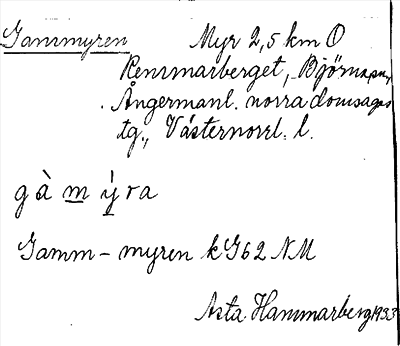 Gammyren Myr 2,5 km O
Remmarberget, Björna sn,
Ångermanl. norra domsagas
tg., Västernorrl. l.
g à m ý r a
Gamm-myren k G62 NM
Asta Hammarberg 1933